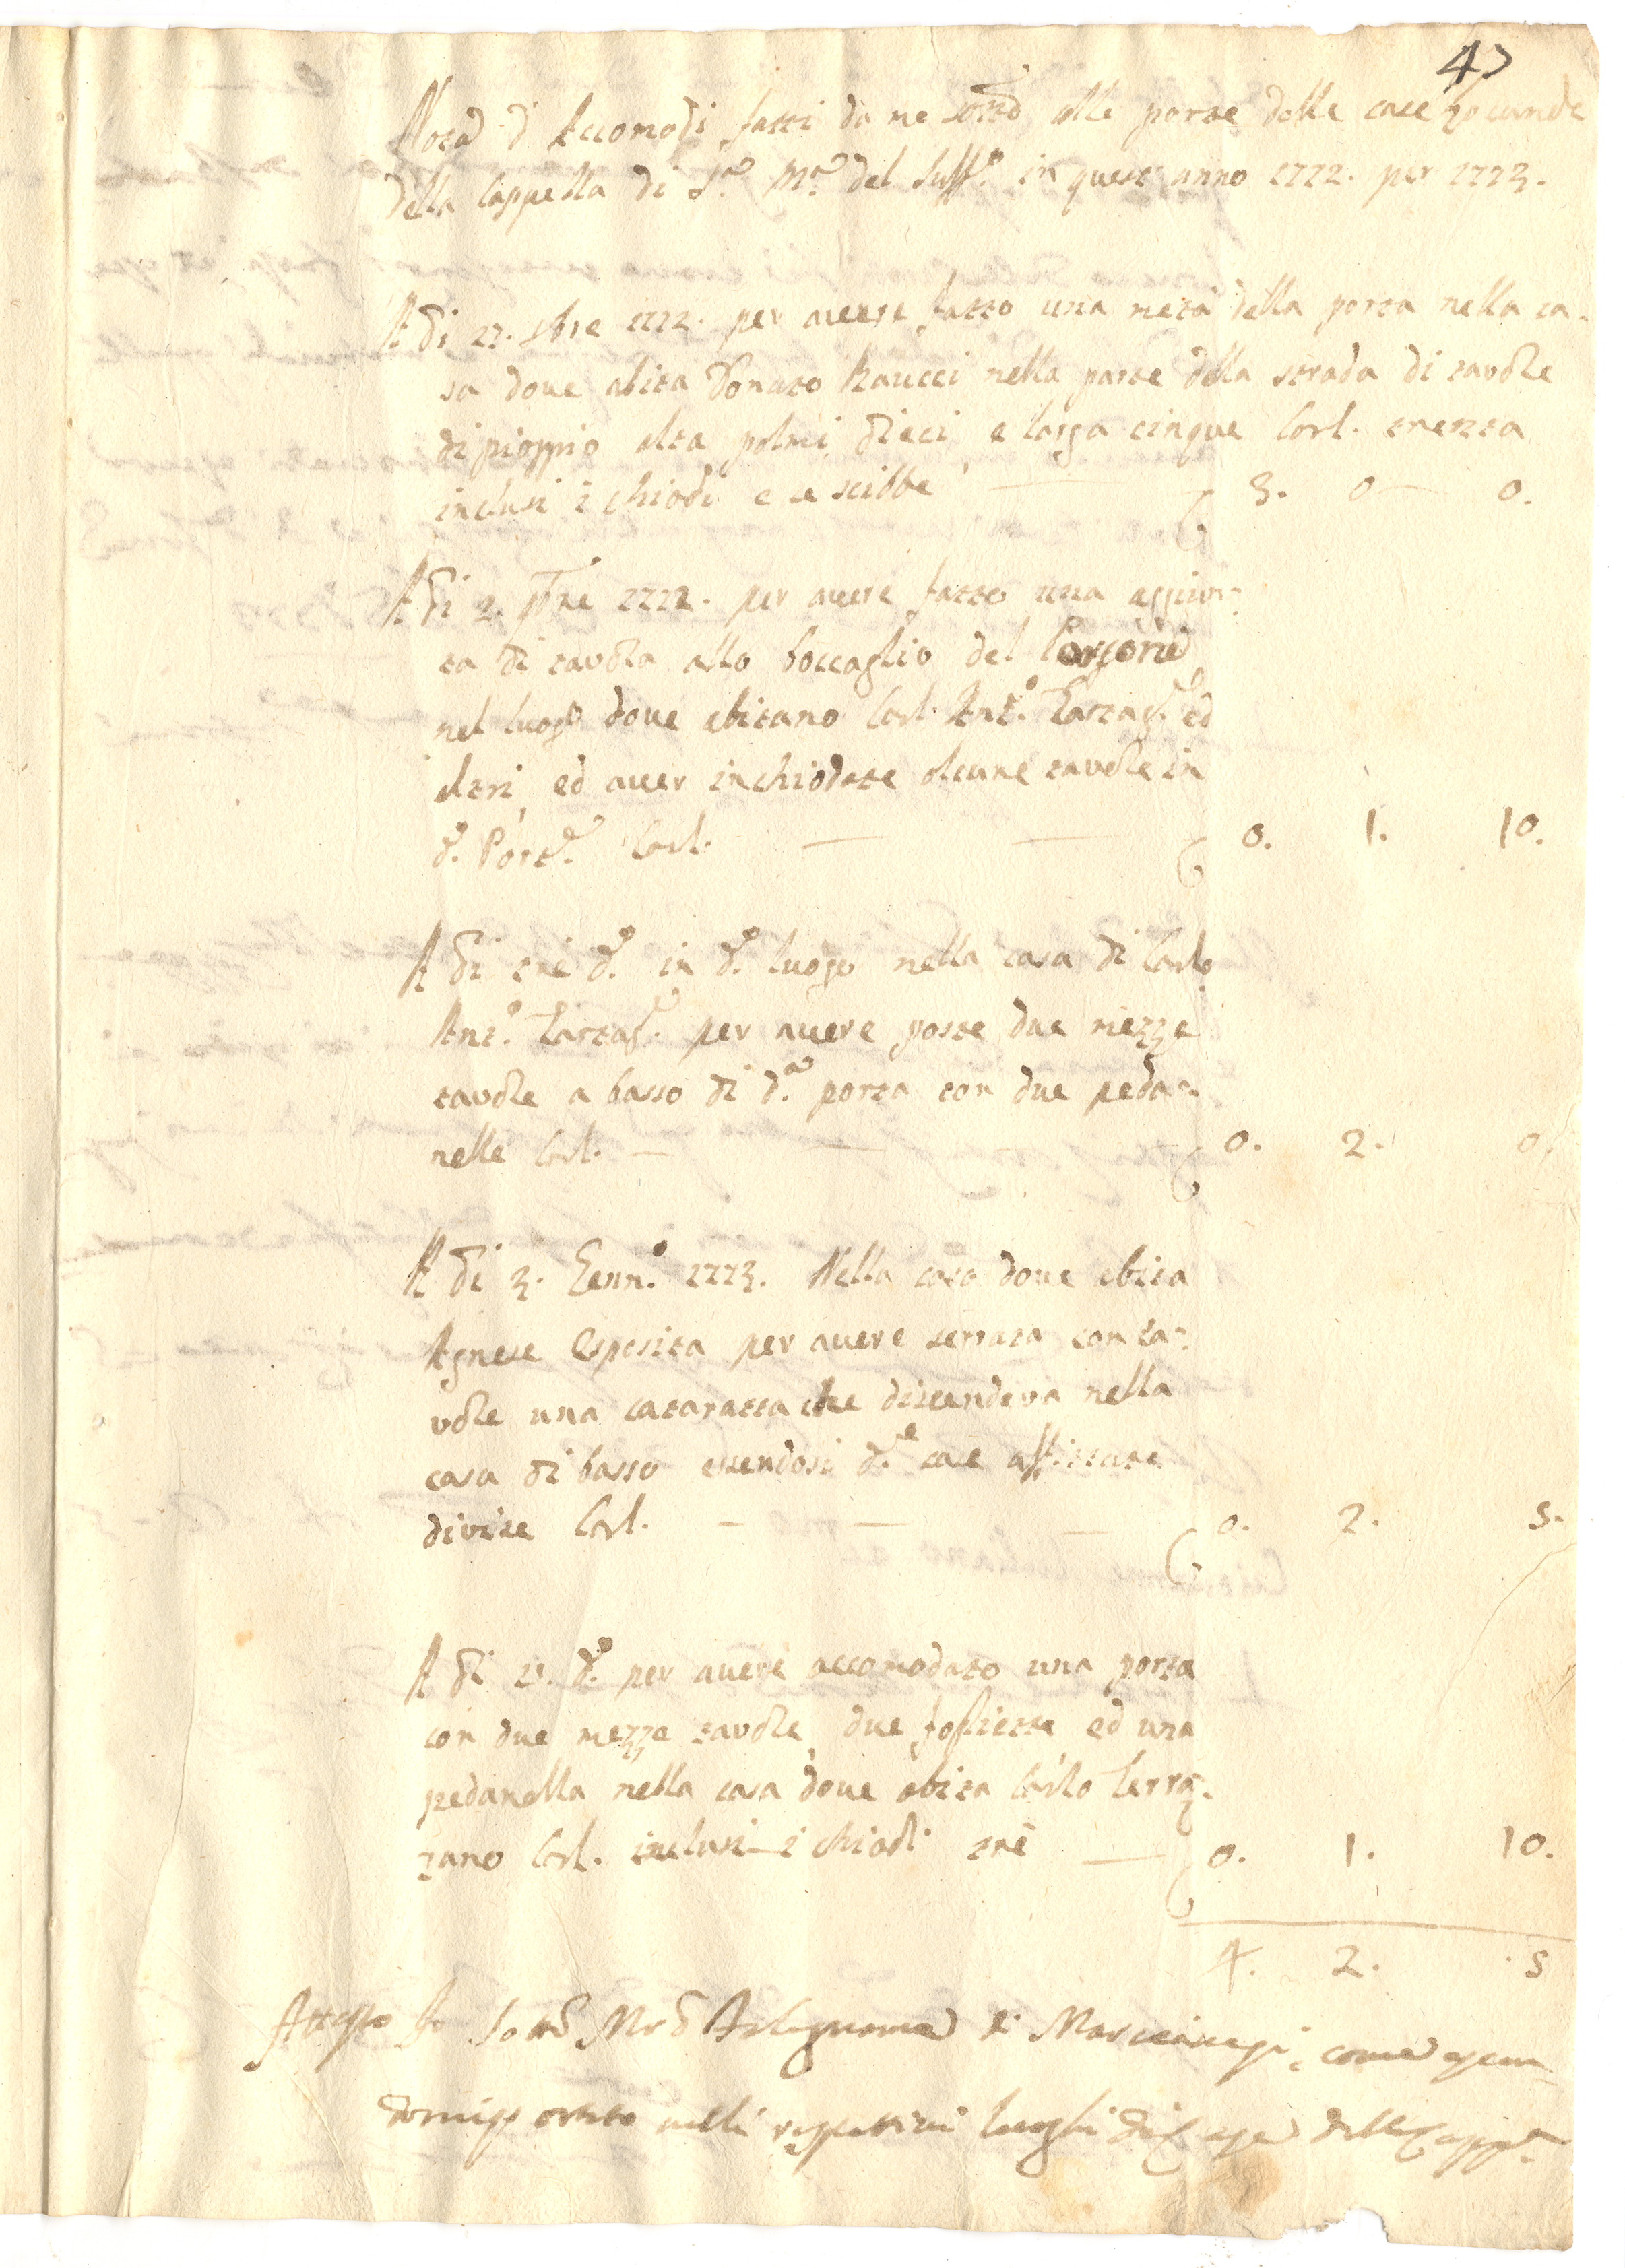 47
Nota d'Accomodi fatti da me sottõ alle porte delle case locande
della Cappella di S.ᵃ M.ᵃ del Suff.º in quest'anno 1772. per 1773.
A di 27. 8bre 1772. per avere fatto una metà della porta nella ca-
sa dove abita Donato Raucci nella parte della strada di tavole
di pioppio alta palmi dieci, e larga cinque Carl. trenta
inclusi i chiodi e le scibbe — 3. 0 — 0.
A di 2. 9bre 1772. per avere fatto una aggiun-
ta di tavola allo boccaglio del Portone
nel luogo dove abitano Carl. Ant.º Tartag.ᵉ ed
altri, ed aver inchiodate alcune tavole in
d.º Port.ᵉ Carl. — — 0. 1. 10.
A di trè d.º in d.º luogo nella casa di Carlo
Ant.º Tartag.ᵉ per avere poste due mezze
tavole a basso di d.ᵃ porta con due peda-
nelle Carl. — — 0. 2. 0.
A di 3. Genn.º 1773. Nella casa dove abita
Agnese Esposita per avere serrata con ta-
vole una cataratta che discendeva nella
casa di basso essendosi d.ᵉ case affittate
divise Carl. — — — 0. 2. 5.
A di d.º per avere accomodato una porta
con due mezze tavole, due fogliette ed una
pedanella nella casa dove abita Carlo Terraz-
zano Carl. inclusi i chiodi trè — 0. 1. 10.
4. 2. 5
Attesto Io Sottõ Mrõ Falegname di Marcianisi, come
nelli rispettivi luoghi di Case della Capp.ᵃ